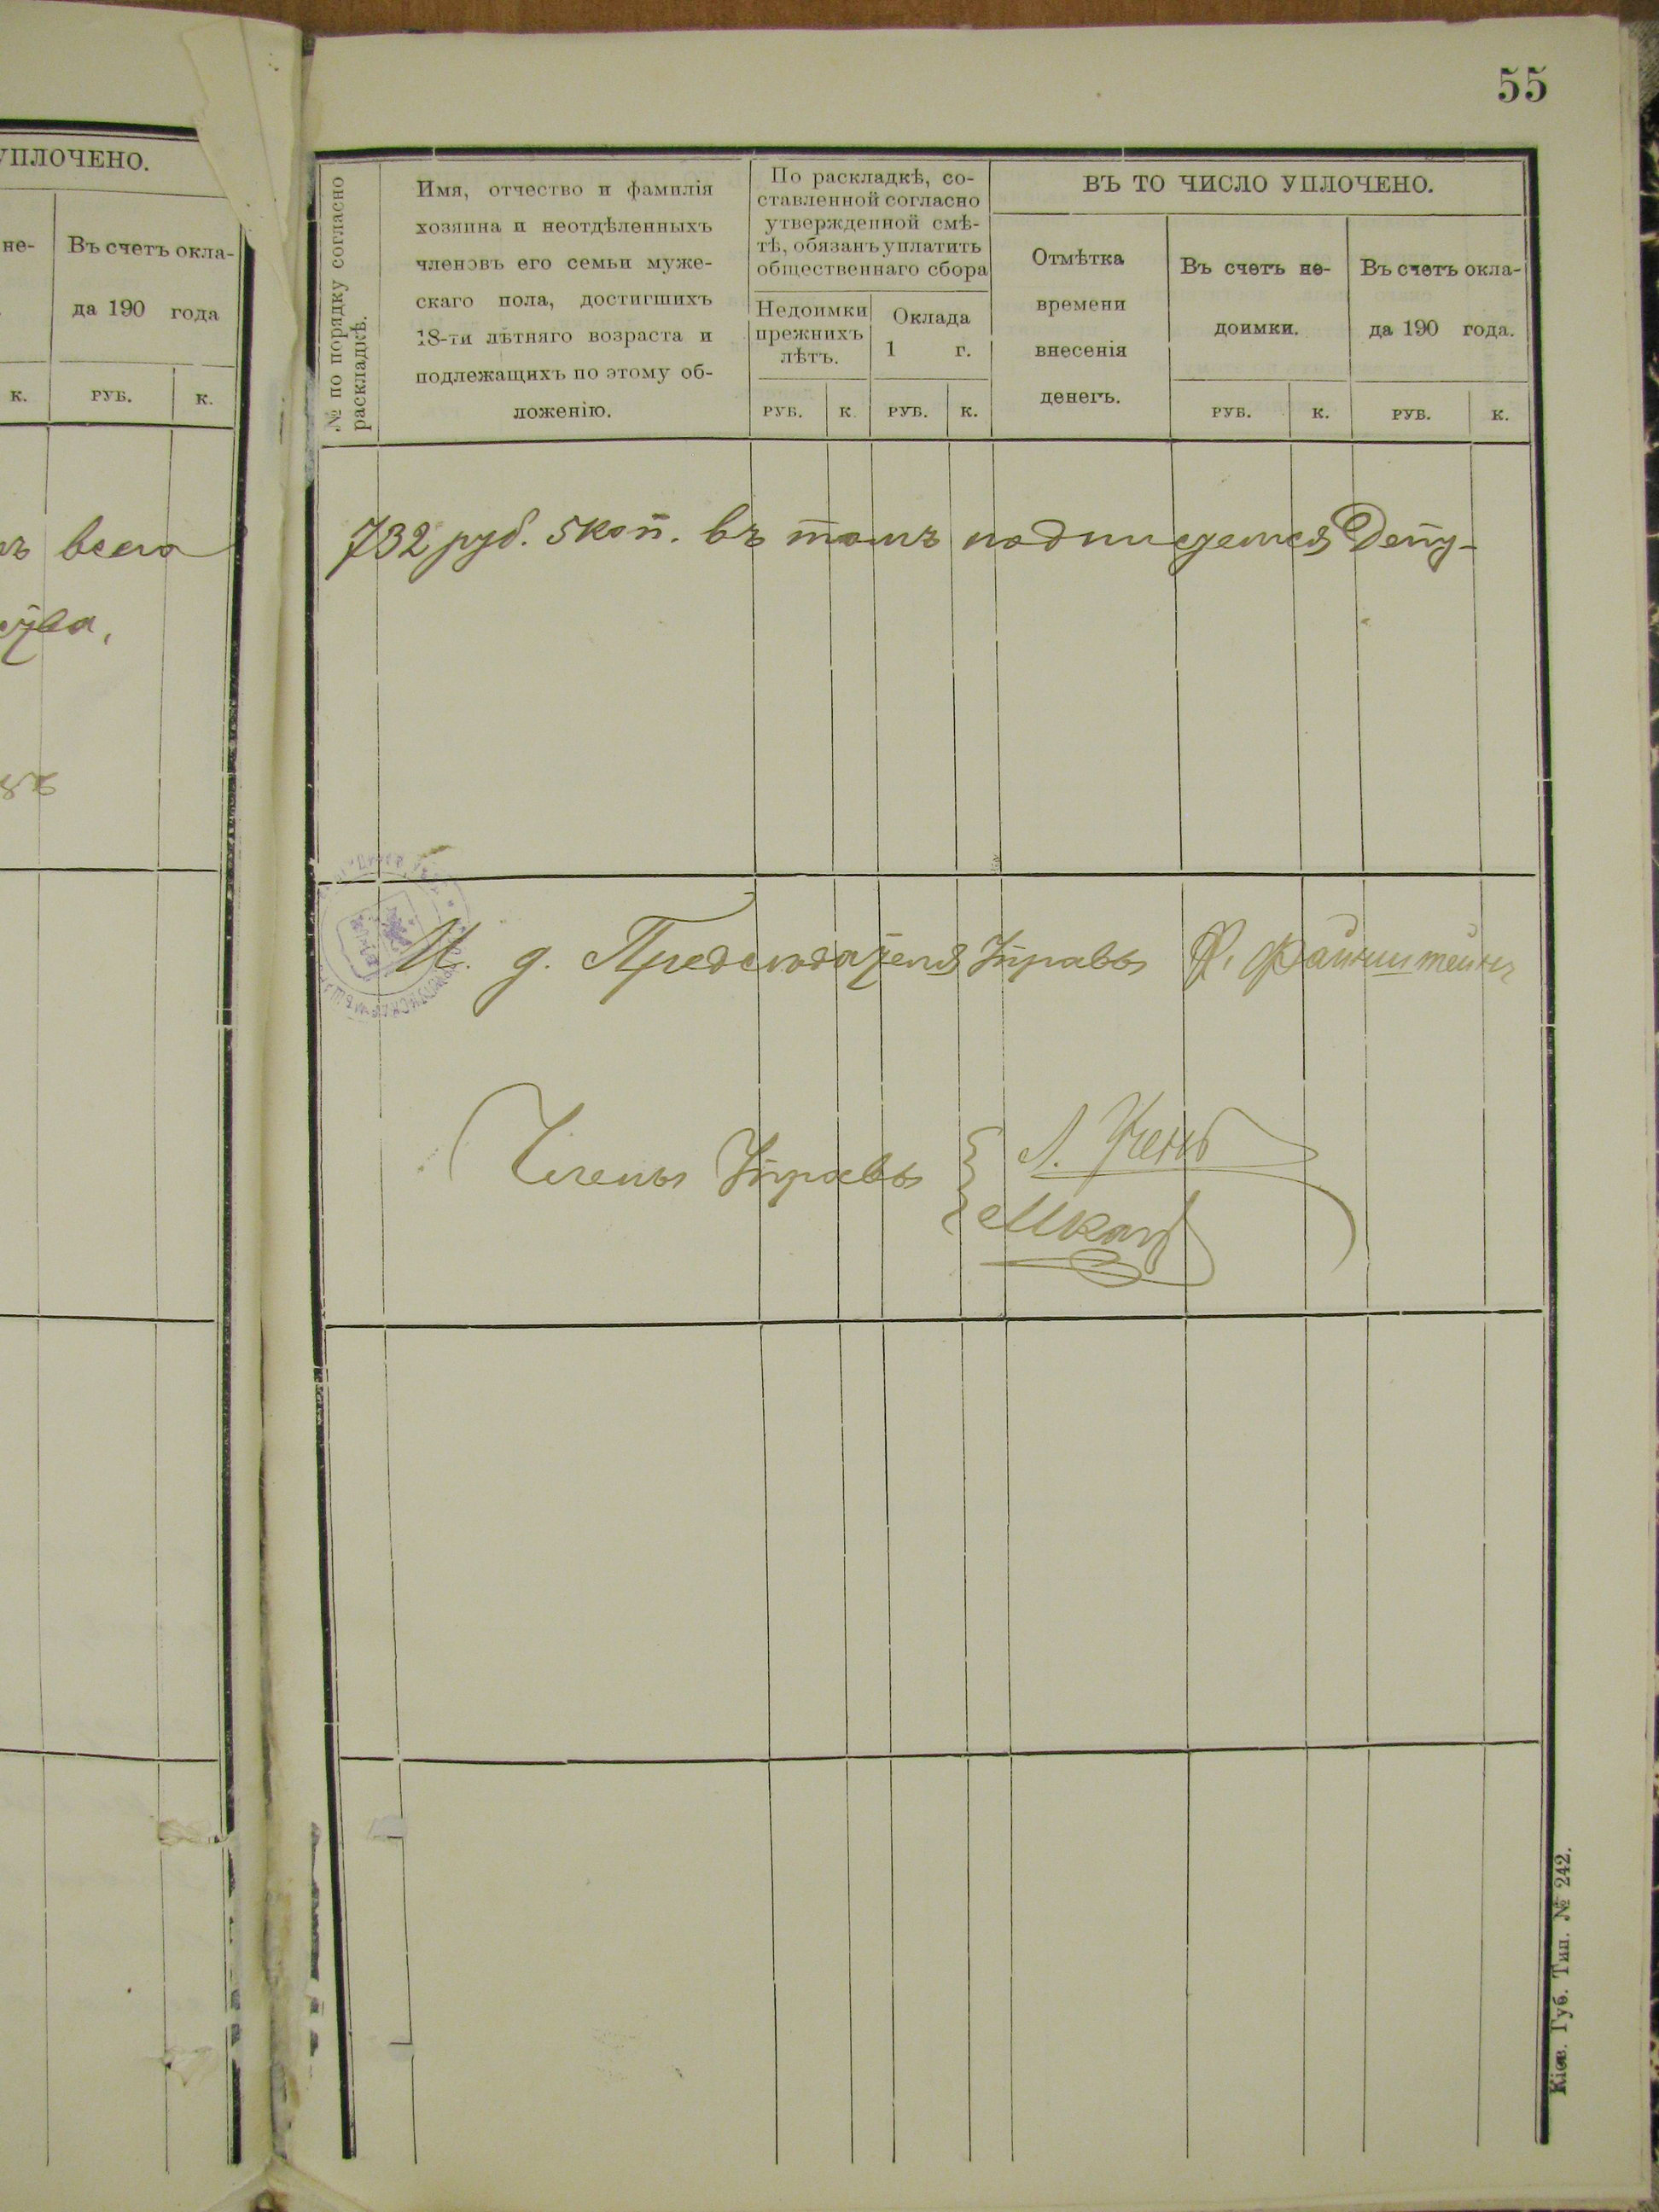 УПЛОЧЕНО.
не-
Въ счетъ окла-
да 190 года
к.
РУБ.
к.
всего
55
№ по порядку согласно
раскладкѣ.
Имя, отчество и фамилія
хозяина и неотдѣленныхъ
членовъ его семьи муже-
скаго пола, достигшихъ
18-ти лѣтняго возраста и
подлежащихъ по этому об-
ложенію.
По раскладкѣ, со-
ставленной согласно
утвержденной смѣ-
тѣ, обязанъ уплатить
общественнаго сбора
Недоимки
прежнихъ
лѣтъ.
Оклада
1 г.
РУБ.
к.
РУБ.
к.
ВЪ ТО ЧИСЛО УПЛОЧЕНО.
Отмѣтка
времени
внесенія
денегъ.
Въ счетъ не-
доимки.
РУБ.
к.
Въ счетъ окла-
да 190 года.
РУБ.
к.
732 руб. 5 коп. въ томъ подписуемся Депу-
И. д. Предсѣдателя Управы Ф. Файнштейнъ
Члены Управы
Кіев. Губ. Тип. № 242.